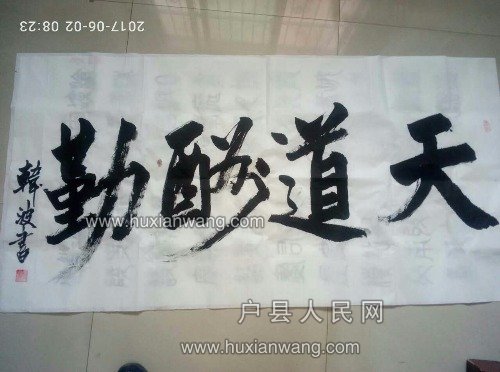 2017-06-02 08:23
天道酬勤
韩波书
www.huxianwang.com
户县人民网
www.huxianwang.com